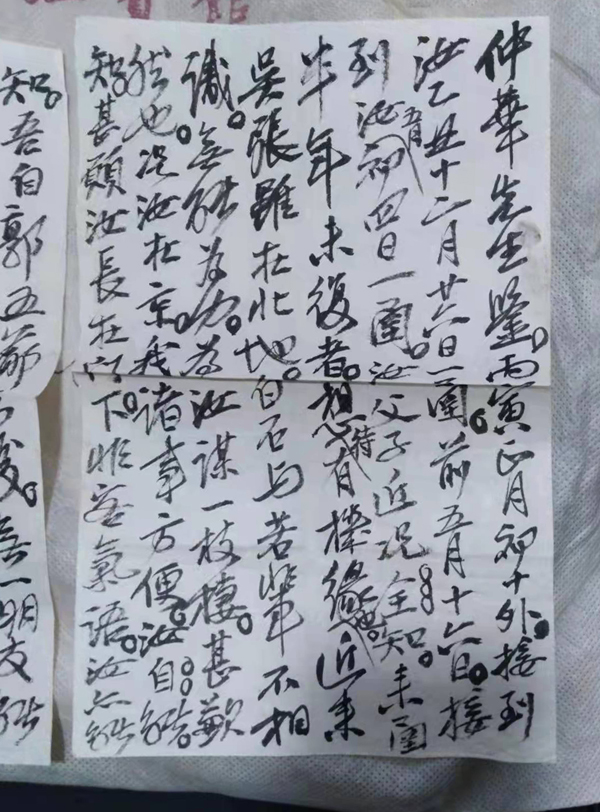 仲華先生鑒。丙寅正月初十外。接到
汝乙丑十二月廿六日一函。前五月十六日。接
到汝五月初四日一函。汝父子近况全知。未函
半年未復者。想特有機緣也。近来
吳張雖在北地。白石与若輩不相
識。無能為力。為汝謀一枝棲。甚歉
然也。况汝在京。我諸事方便。汝自能
知。甚願汝長在門下。非客氣語。汝亦能
知。吾自郭五爺 後。無一朋友能